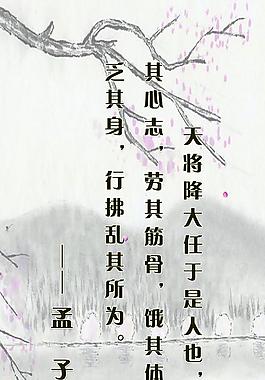 天将降大任于是人也，
其心志，劳其筋骨，饿其体
乏其身，行拂乱其所为。
——孟子